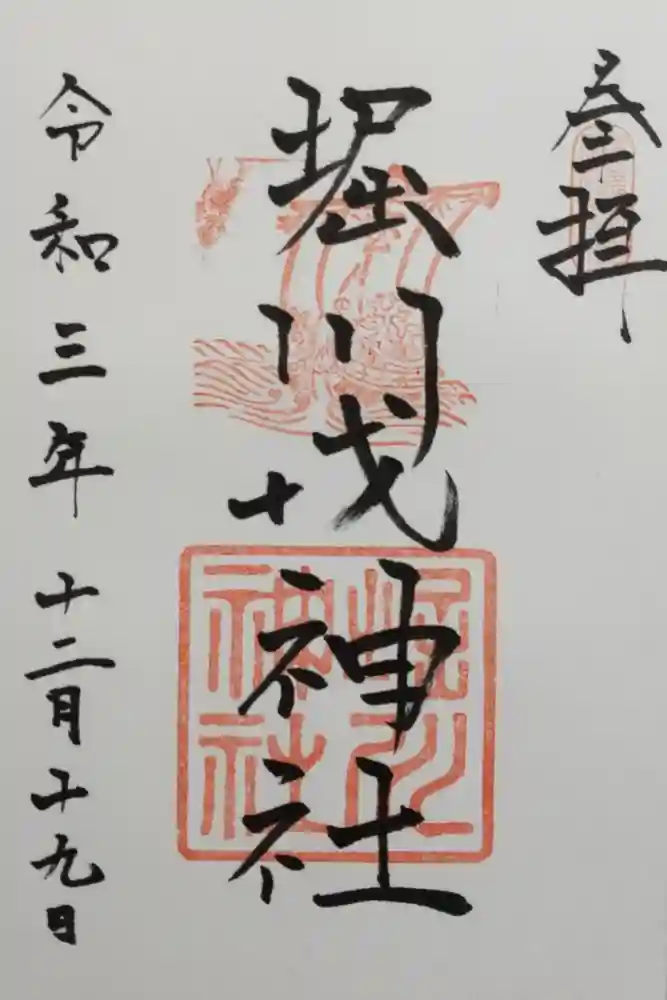 参拝
堀川戎神社
令和三年十二月十九日
堀川
神社